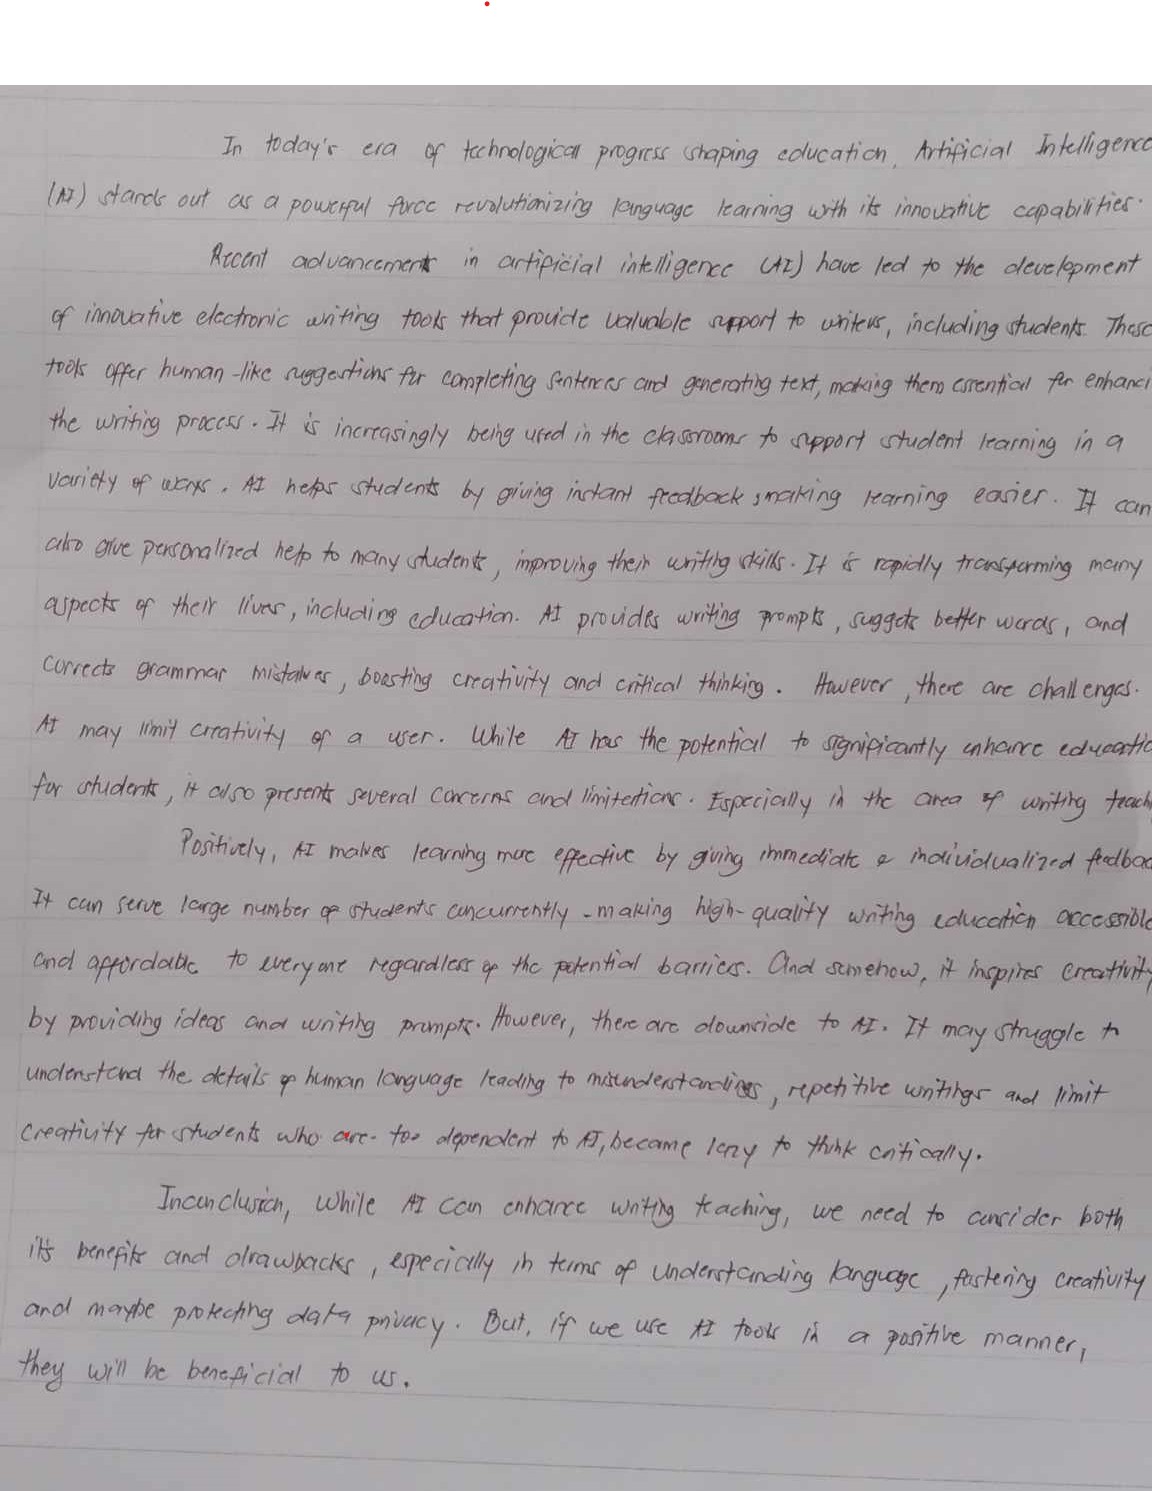 In today's era of technological progress shaping education, Artificial Intelligence
(AI) stands out as a powerful force revolutionizing language learning with its innovative capabilities.
Recent advancements in artificial intelligence (AI) have led to the development
of innovative electronic writing tools that provide valuable support to writers, including students. These
tools offer human-like suggestions for completing sentences and generating text, making them essential for enhanci
the writing process. It is increasingly being used in the classrooms to support student learning in a
variety of ways. AI helps students by giving instant feedback, making learning easier. It can
also give personalized help to many students, improving their writing skills. It is rapidly transforming many
aspects of their lives, including education. AI provides writing prompts, suggets better words, and
corrects grammar mistakes, boosting creativity and critical thinking. However, there are challenges.
AI may limit creativity of a user. While AI has the potential to significantly enhance educatio
for students, it also presents several concerns and limitations. Especially in the area of writing teach
Positively, AI makes learning more effective by giving immediate & individualized feedbac
It can serve large number of students concurrently - making high-quality writing education accessible
and affordable to everyone regardless of the potential barriers. And somehow, it inspires creativity
by providing ideas and writing prompts. However, there are downside to AI. It may struggle to
understand the details of human language leading to misunderstandings, repetitive writings and limit
creativity for students who are too dependent to AI, became lazy to think critically.
Inconclusion, while AI can enhance writing teaching, we need to consider both
it's benefits and drawbacks, especially in terms of understanding language, fostering creativity
and maybe protecting data privacy. But, if we use AI tools in a positive manner,
they will be beneficial to us.